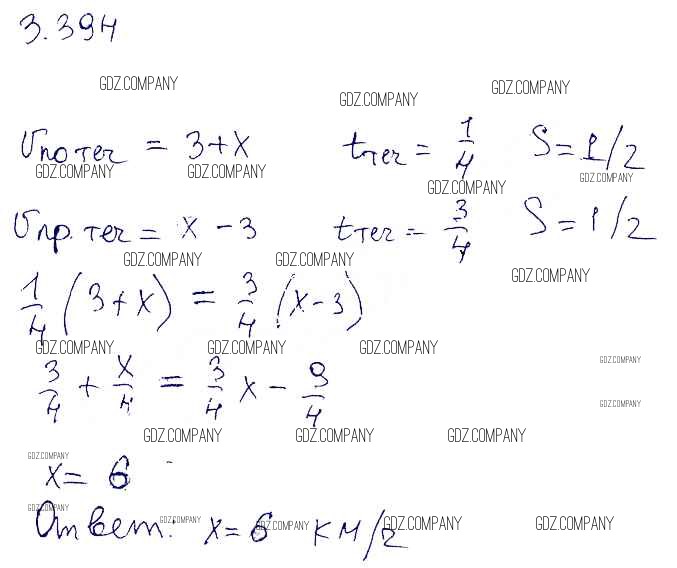 3.394
GDZ.COMPANY GDZ.COMPANY GDZ.COMPANY
Vпо теч = 3+x tтеч = 1/4 S = 1/2
GDZ.COMPANY GDZ.COMPANY GDZ.COMPANY GDZ.COMPANY
Vпр. теч = x - 3 tтеч = 3/4 S = 1/2
GDZ.COMPANY GDZ.COMPANY GDZ.COMPANY
1/4 (3+x) = 3/4 (x-3)
GDZ.COMPANY GDZ.COMPANY GDZ.COMPANY GDZ.COMPANY
3/4 + x/4 = 3/4 x - 9/4
GDZ.COMPANY
GDZ.COMPANY GDZ.COMPANY GDZ.COMPANY
GDZ.COMPANY
x = 6
GDZ.COMPANY
Ответ: x = 6 км/г
GDZ.COMPANY GDZ.COMPANY GDZ.COMPANY GDZ.COMPANY